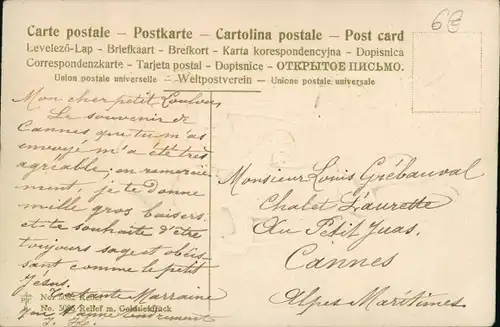 Carte postale – Postkarte – Cartolina postale – Post card
Levelező-Lap - Briefkaart - Brefkort - Karta korespondencyjna - Dopisnica
Correspondenzkarte - Tarjeta postal - Dopisnice - ОТКРЫТОЕ ПИСЬМО.
Union postale universelle – Weltpostverein – Unione postale universale
6€
Mon cher petit Loulou
Le souvenir de
Cannes que tu m'as
envoyé m'a été très
agréable; en remercie
ment, je te donne
mille gros baisers
et te souhaite d'être
toujours sage et obéis
sant comme le petit
Jésus.
Ta tante Marraine
qui t'aime tendrement
Monsieur Louis Grébauval
Chalet Laurette
Au Petit Juas.
Cannes
Alpes Maritimes
No. Relief
No. Relief m. Golddruck